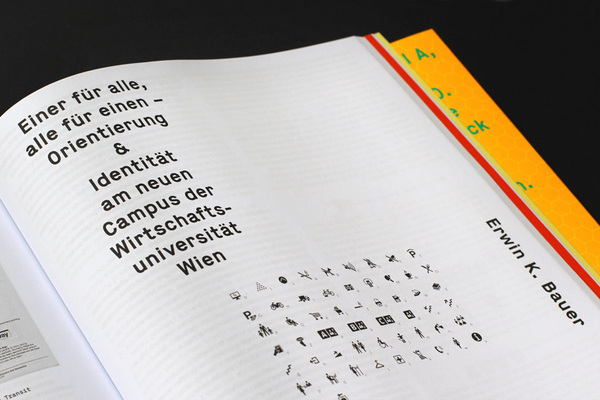 Einer für alle,
alle für einen –
Orientierung
&
Identität
am neuen
Campus der
Wirtschafts-
universität
Wien
Erwin K. Bauer
Transit